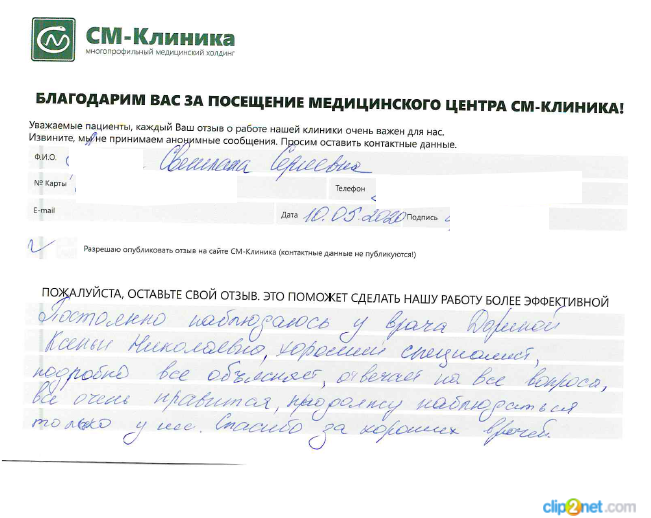 СМ-Клиника
многопрофильный медицинский холдинг
БЛАГОДАРИМ ВАС ЗА ПОСЕЩЕНИЕ МЕДИЦИНСКОГО ЦЕНТРА СМ-КЛИНИКА!
Уважаемые пациенты, каждый Ваш отзыв о работе нашей клиники очень важен для нас.
Извините, мы не принимаем анонимные сообщения. Просим оставить контактные данные.
Ф.И.О. Светлана Сергеевна
№ Карты Телефон
E-mail Дата 10.05.2020 Подпись
Разрешаю опубликовать отзыв на сайте СМ-Клиника (контактные данные не публикуются!)
ПОЖАЛУЙСТА, ОСТАВЬТЕ СВОЙ ОТЗЫВ. ЭТО ПОМОЖЕТ СДЕЛАТЬ НАШУ РАБОТУ БОЛЕЕ ЭФФЕКТИВНОЙ
Постоянно наблюдаюсь у врача
Ксеньи Николаевны, хороший специалист,
подробно все объясняет, отвечает на все вопросы,
все очень нравится, продолжу наблюдаться
только у нее. Спасибо за хороших врачей.
clip2net.com